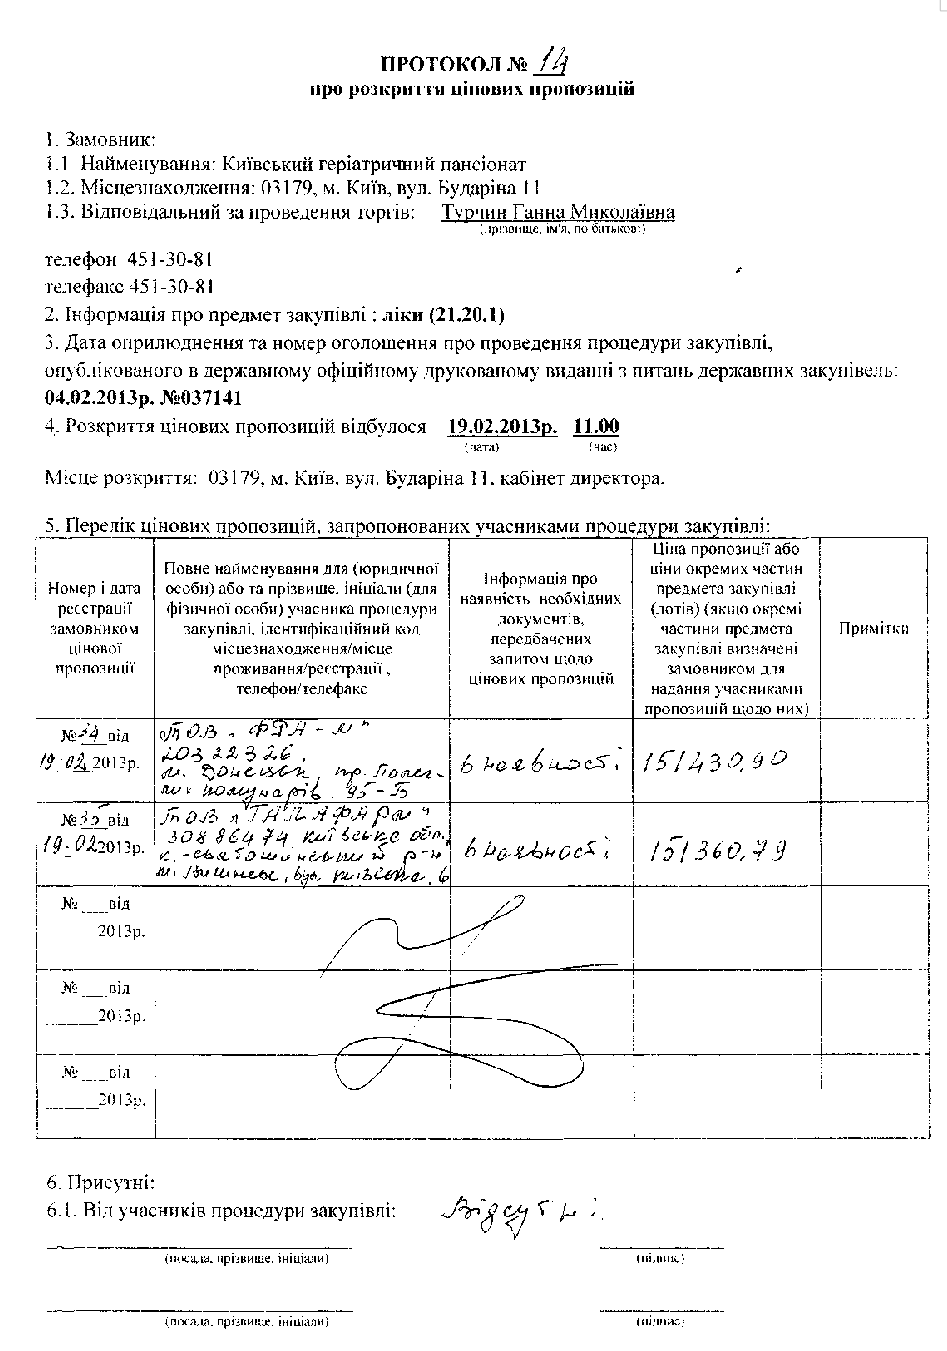 ПРОТОКОЛ № 14
про розкриття цінових пропозицій
1. Замовник:
1.1 Найменування: Київський геріатричний пансіонат
1.2. Місцезнаходження: 03179, м. Київ, вул. Бударіна 11
1.3. Відповідальний за проведення торгів: Турчин Ганна Миколаївна
(прізвище, ім'я, по батькові)
телефон 451-30-81
телефакс 451-30-81
2. Інформація про предмет закупівлі : ліки (21.20.1)
3. Дата оприлюднення та номер оголошення про проведення процедури закупівлі,
опублікованого в державному офіційному друкованому виданні з питань державних закупівель:
04.02.2013р. №037141
4. Розкриття цінових пропозицій відбулося 19.02.2013р. 11.00
(дата) (час)
Місце розкриття: 03179, м. Київ, вул. Бударіна 11, кабінет директора.
5. Перелік цінових пропозицій, запропонованих учасниками процедури закупівлі:
Номер і дата
реєстрації
замовником
цінової
пропозиції
Повне найменування для (юридичної
особи) або та прізвище, ініціали (для
фізичної особи) учасника процедури
закупівлі, ідентифікаційний код,
місцезнаходження/місце
проживання/реєстрації ,
телефон/телефакс
Інформація про
наявність необхідних
документів,
передбачених
запитом щодо
цінових пропозицій
Ціна пропозиції або
ціни окремих частин
предмета закупівлі
(лотів) (якщо окремі
частини предмета
закупівлі визначені
замовником для
надання учасниками
пропозицій щодо них)
Примітки
№34 від
19.02.2013р.
ТОВ "ФРА-М"
20322326,
м. Донецьк, пр. Полег-
лих комунарів, 95-Б
в наявності
151430,90
№35 від
19.02.2013р.
ТОВ "ГАЛАФАРМ"
30886474, Київська обл.,
К.-Святошинський р-н
м. Вишневе, вул. Київська, 6
в наявності
151360,79
№ ___від
2013р.
№ ___від
______2013р.
№ ___від
______2013р.
6. Присутні:
6.1. Від учасників процедури закупівлі: Відсутні.
(посада, прізвище, ініціали) (підпис)
(посада, прізвище, ініціали) (підпис)